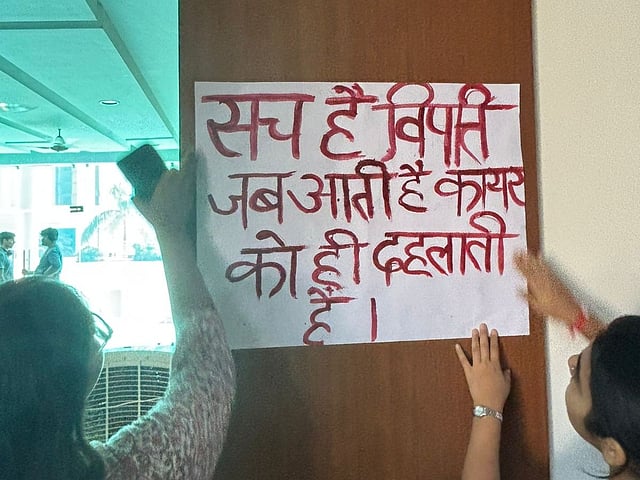 सच है विपत्ति
जब आती है कायर
को ही दहलाती
है।